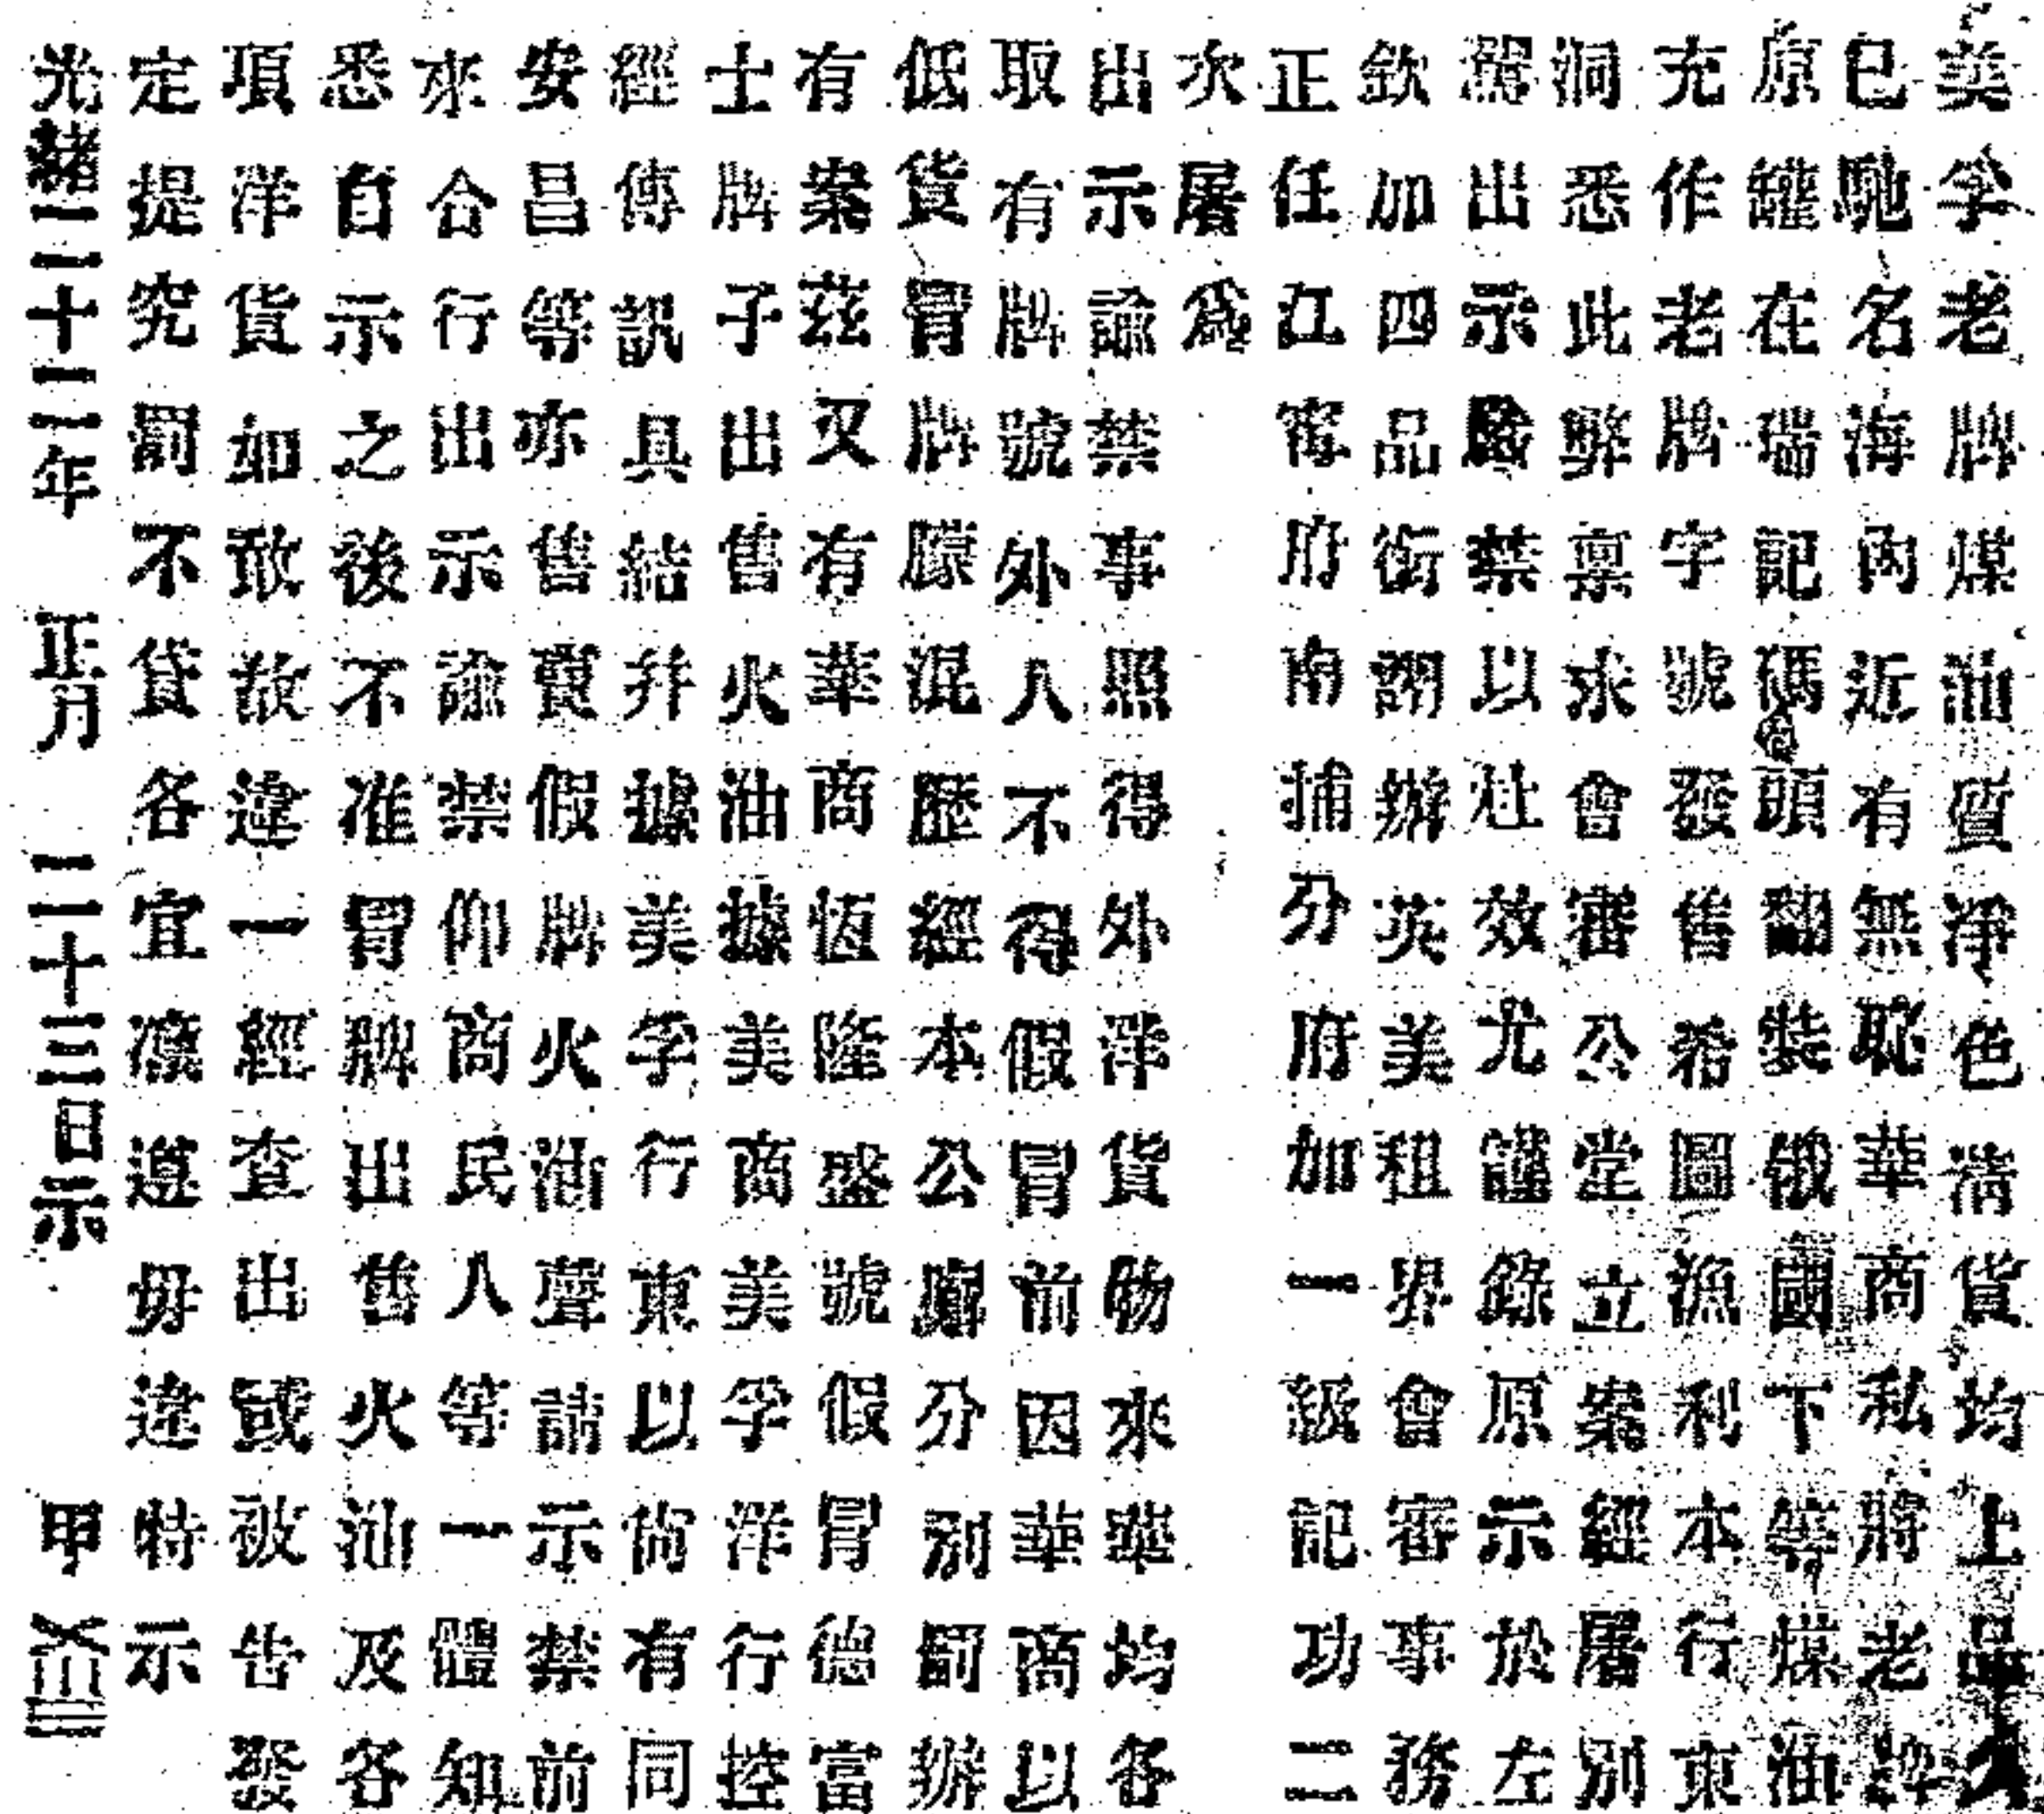 美孚老牌煤油質淨色清貨均上品久
已馳名海內近有無恥華商私將老牌
原罐在瑞記碼頭翻裝俄國下等煤油
充作老牌字號發售希圖漁利本行東
洞悉此弊稟求會審公堂立案經屠別
駕出示嚴禁以杜效尤謹錄原示於左
欽加四品銜調辦英美租界會審事務
正任江寗府南捕分府加一級記功二
次屠爲
出示諭禁事照得外洋貨物來華均各
取有牌號外人不得假冒前因華商以
低貨冒牌矇混歷經本公廨分別罰辦
有案茲又有華商恆隆盛號假冒德富
士牌子出售火油據美商美孚洋行控
經傳訊具結幷據美孚行東以尙有同
安昌等亦售賣假牌火油聲請示禁前
來合行出示諭禁仰商民人等一體知
悉自示之後不准冒牌出售火油及各
項洋貨如敢故違一經查出或被告發
定提究罰不貸各宜凜遵毋違特示
光緒二十二年 正月 二十三日示 甲